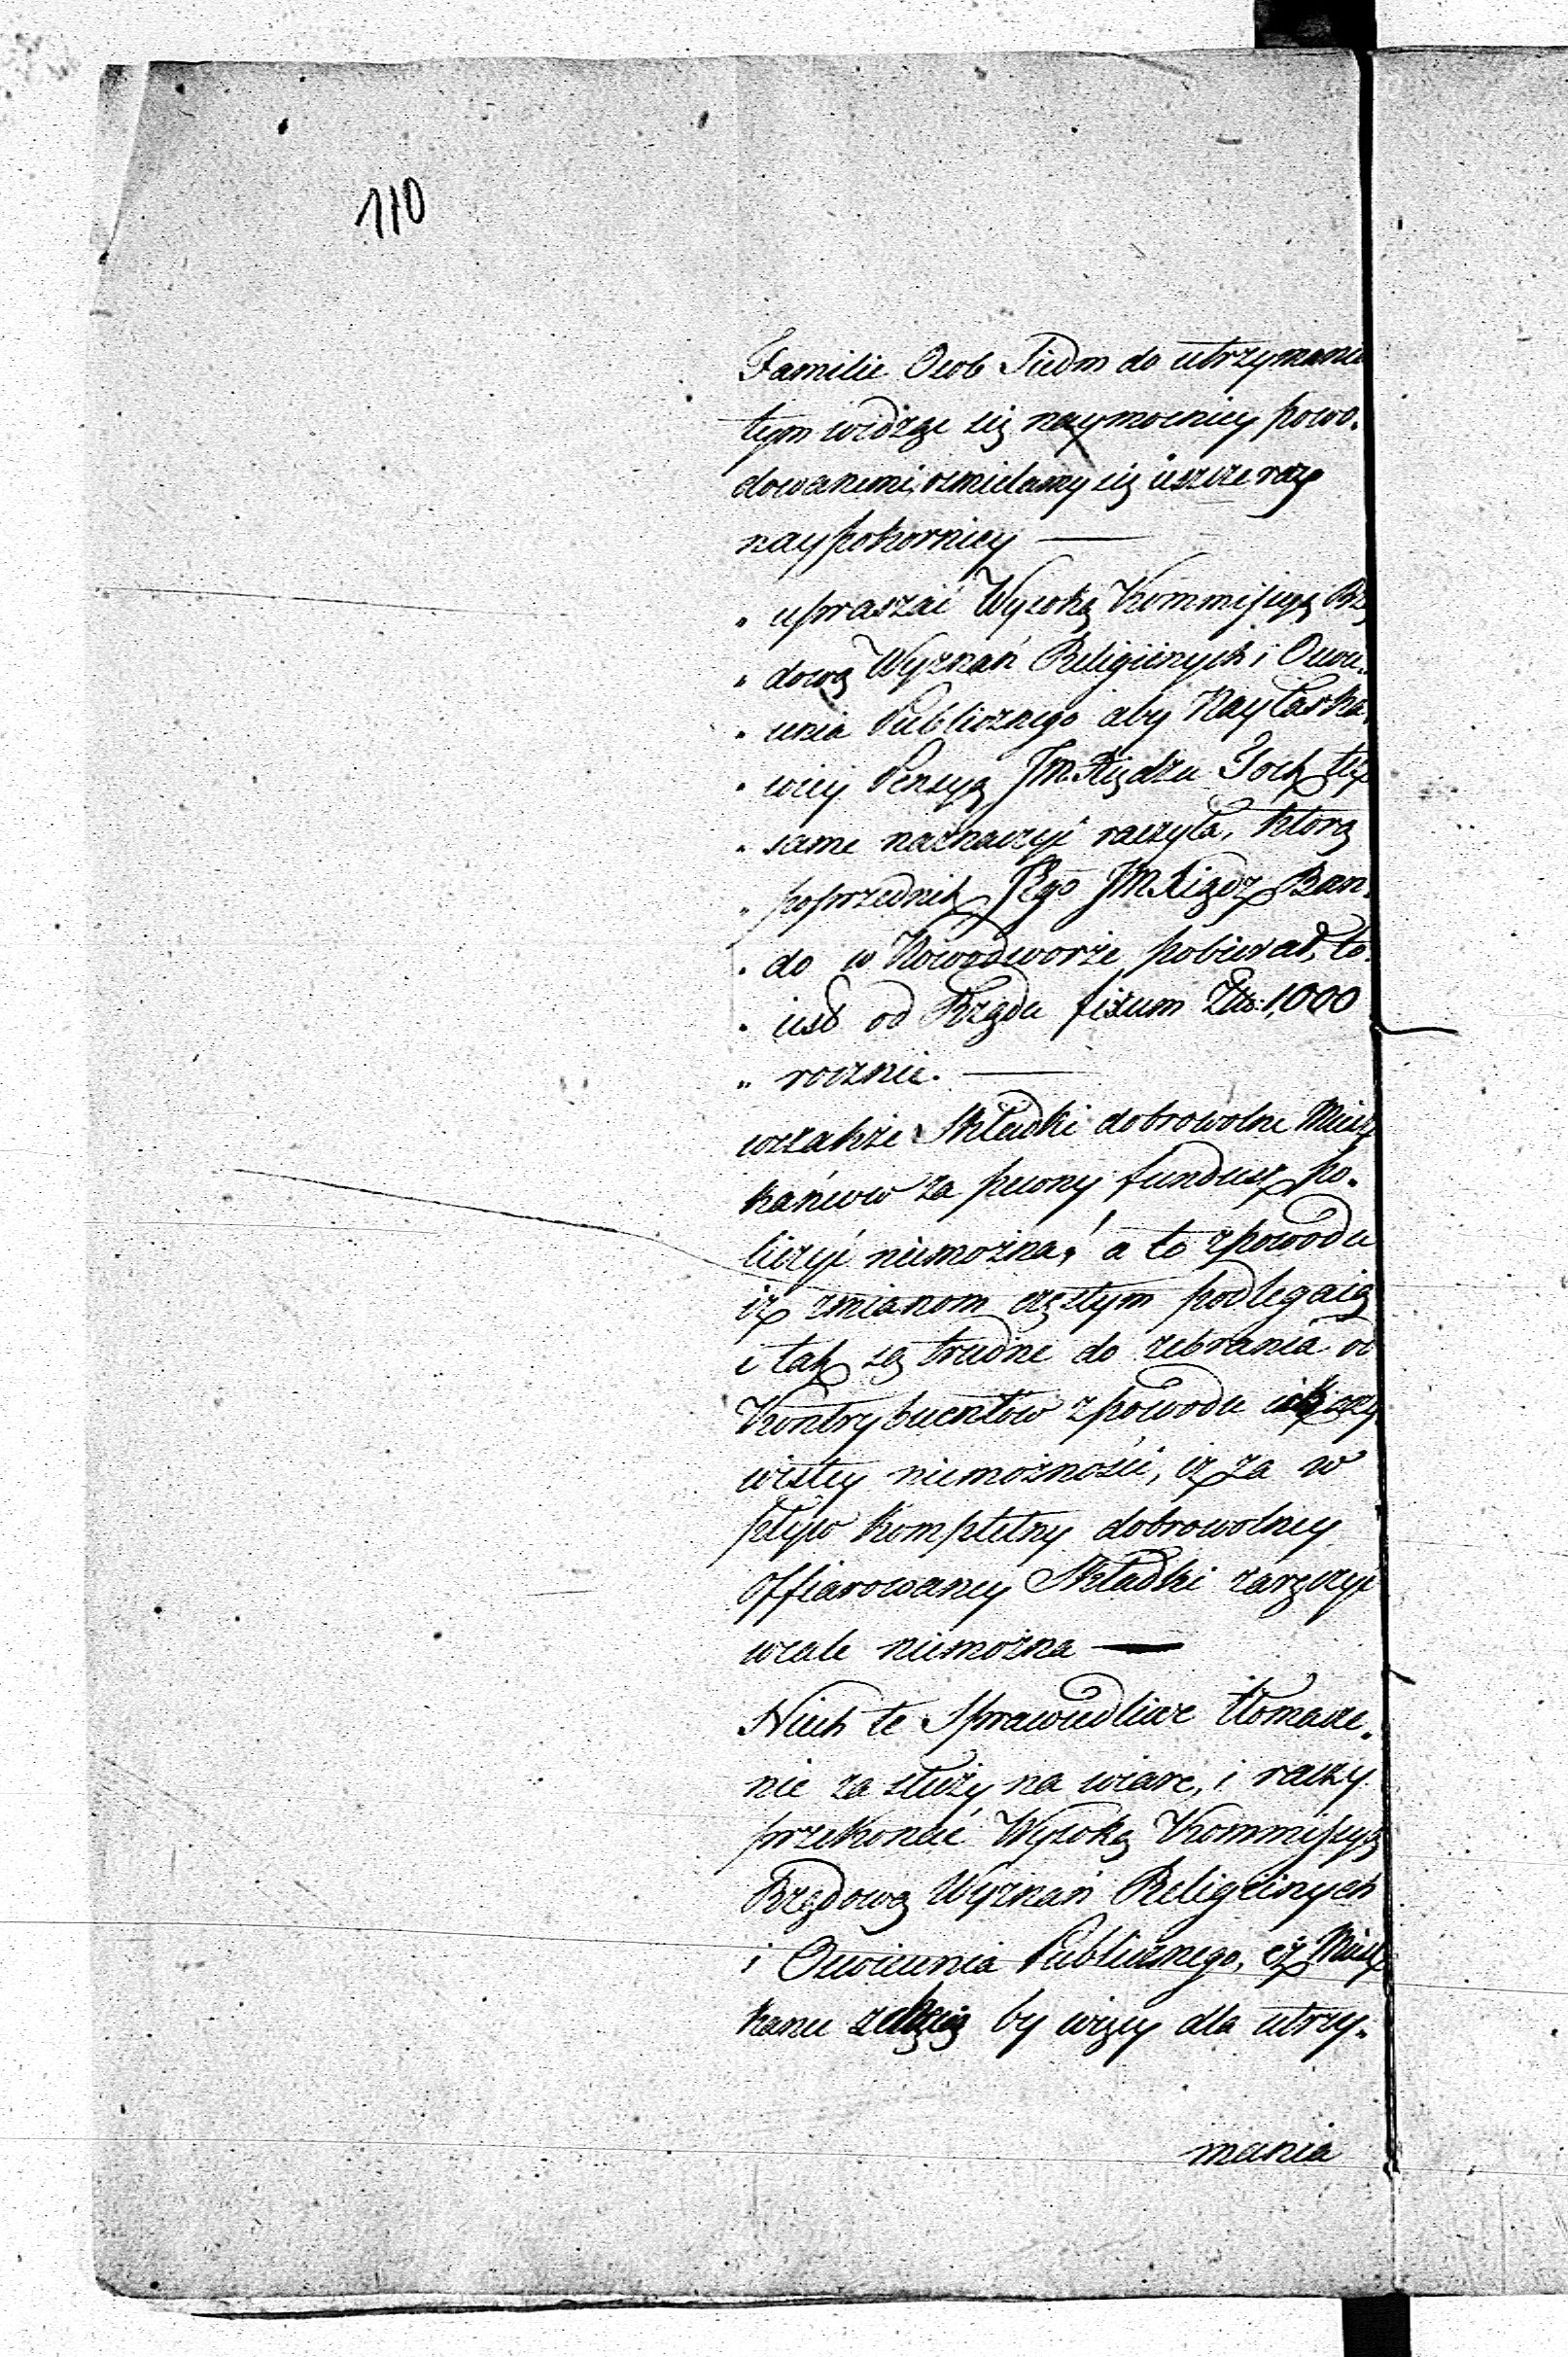 110
Familie Osob Siedm do utrzymania
tym widząc się naymocniey powo„
dowanemi, osmielamy się ieszcze raz
naypokorniey —
„ upraszać Wysoką Kommissyą Rzą
„ dową Wyznań Religiinych i Oswi„
„ cenia Publicznego aby Nayłaska„
„ wiey Pensyą JM. Xiędzu Joch tęż
„ same naznaczyć raczyła, którą
„ poprzednik Jego JM Xiądz Ban„
„ do w Nowodworze pobierał, to
„ iest od Rządu fixum Złt: 1,000
„ rocznie. —
wszakże Składki dobrowolne Miesz
kańców za pewny fundusz po„
liczyć niemożna, a to zpowodu
iż zmianom częstym podlegaią
i tak są trudne do zebrania od
Kontrybuentów zpowodu ich oczy
wistey niemożności, iż za w
pływ kompletny dobrowolney
offiarowaney Składki zaręczyć
wcale niemożna —
Niech te Sprawiedliwe tłomacze„
nie za służy na wiare, i raczy
przekonać Wysoką Kommissyą
Rządową Wyznań Religiinych
i Oswiecenia Publicznego, iż Miesz
kance by więcy dla utrzy„
mania